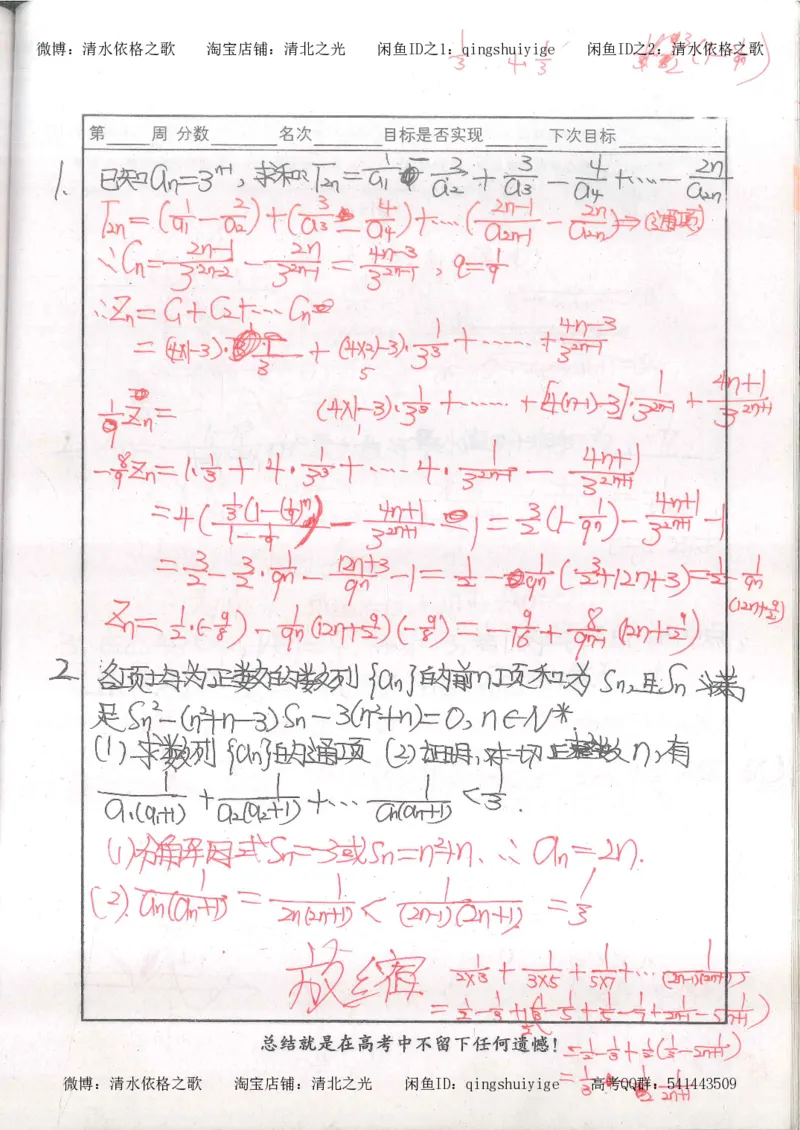 微博：清水依格之歌 淘宝店铺：清北之光 闲鱼ID之1：qingshuiyige 闲鱼ID之2：清水依格之歌
第____周 分数____ 名次____ 目标是否实现____ 下次目标____
1. 已知aₙ=3ⁿ⁻¹, 求和:T₂ₙ=1/a₁ - 2/a₂ + 3/a₃ - 4/a₄ +…… - 2n/a₂ₙ
T₂ₙ=(1/a₁ - 2/a₂)+(3/a₃ - 4/a₄)+…(2n-1/a₂ₙ₋₁ - 2n/a₂ₙ)⇒(通项)
∴Cₙ=2n-1/3²ⁿ⁻² - 2n/3²ⁿ⁻¹ = 4n-3/3²ⁿ⁻¹, q=1/9
∴Zₙ=C₁+C₂+…Cₙ
=(4×1-3)·1/3 + (4×2-3)·1/3³ +……+ 4n-3/3²ⁿ⁻¹
1/9 Zₙ= (4×1-3)·1/3³ +……+[4(n-1)-3]·1/3²ⁿ⁻¹ + 4n+1/3²ⁿ⁺¹
-8/9 Zₙ=1·1/3 + 4·1/3³ +…4·1/3²ⁿ⁻¹ - 4n+1/3²ⁿ⁺¹
=4( 1/3(1-(1/9)ⁿ) / 1-1/9 ) - 4n+1/3²ⁿ⁺¹ - 1 = 3/2(1-1/9ⁿ) - 4n+1/3²ⁿ⁺¹ - 1
=3/2 - 3/2·1/9ⁿ - 12n+3/9ⁿ - 1 = 1/2 - 1/9ⁿ(3/2+12n+3)=1/2 - 1/9ⁿ(12n+9/2)
Zₙ=1/2·(-9/8) - 1/9ⁿ(12n+9/2)(-9/8)=-9/16 + 8/9ⁿ⁺¹(12n+9/2)
2. 各项均为正数的数列{aₙ}的前n项和为Sₙ,且Sₙ满
足Sₙ²-(n²+n-3)Sₙ-3(n²+n)=0, n∈N*
(1)求数列{aₙ}的通项 (2)证明,对一切正整数n,有
1/a₁(a₁+1) + 1/a₂(a₂+1) +… 1/aₙ(aₙ+1) < 1/3.
(1)分解因式Sₙ=-3或Sₙ=n²+n. ∴aₙ=2n.
(2). 1/aₙ(aₙ+1) = 1/2n(2n+1) < 1/(2n-1)(2n+1) = 1/3
放缩 1/2×3 + 1/3×5 + 1/5×7 +… 1/(2n-1)(2n+1)
总结就是在高考中不留下任何遗憾!
微博：清水依格之歌 淘宝店铺：清北之光 闲鱼ID：qingshuiyige 高考QQ群：541443509